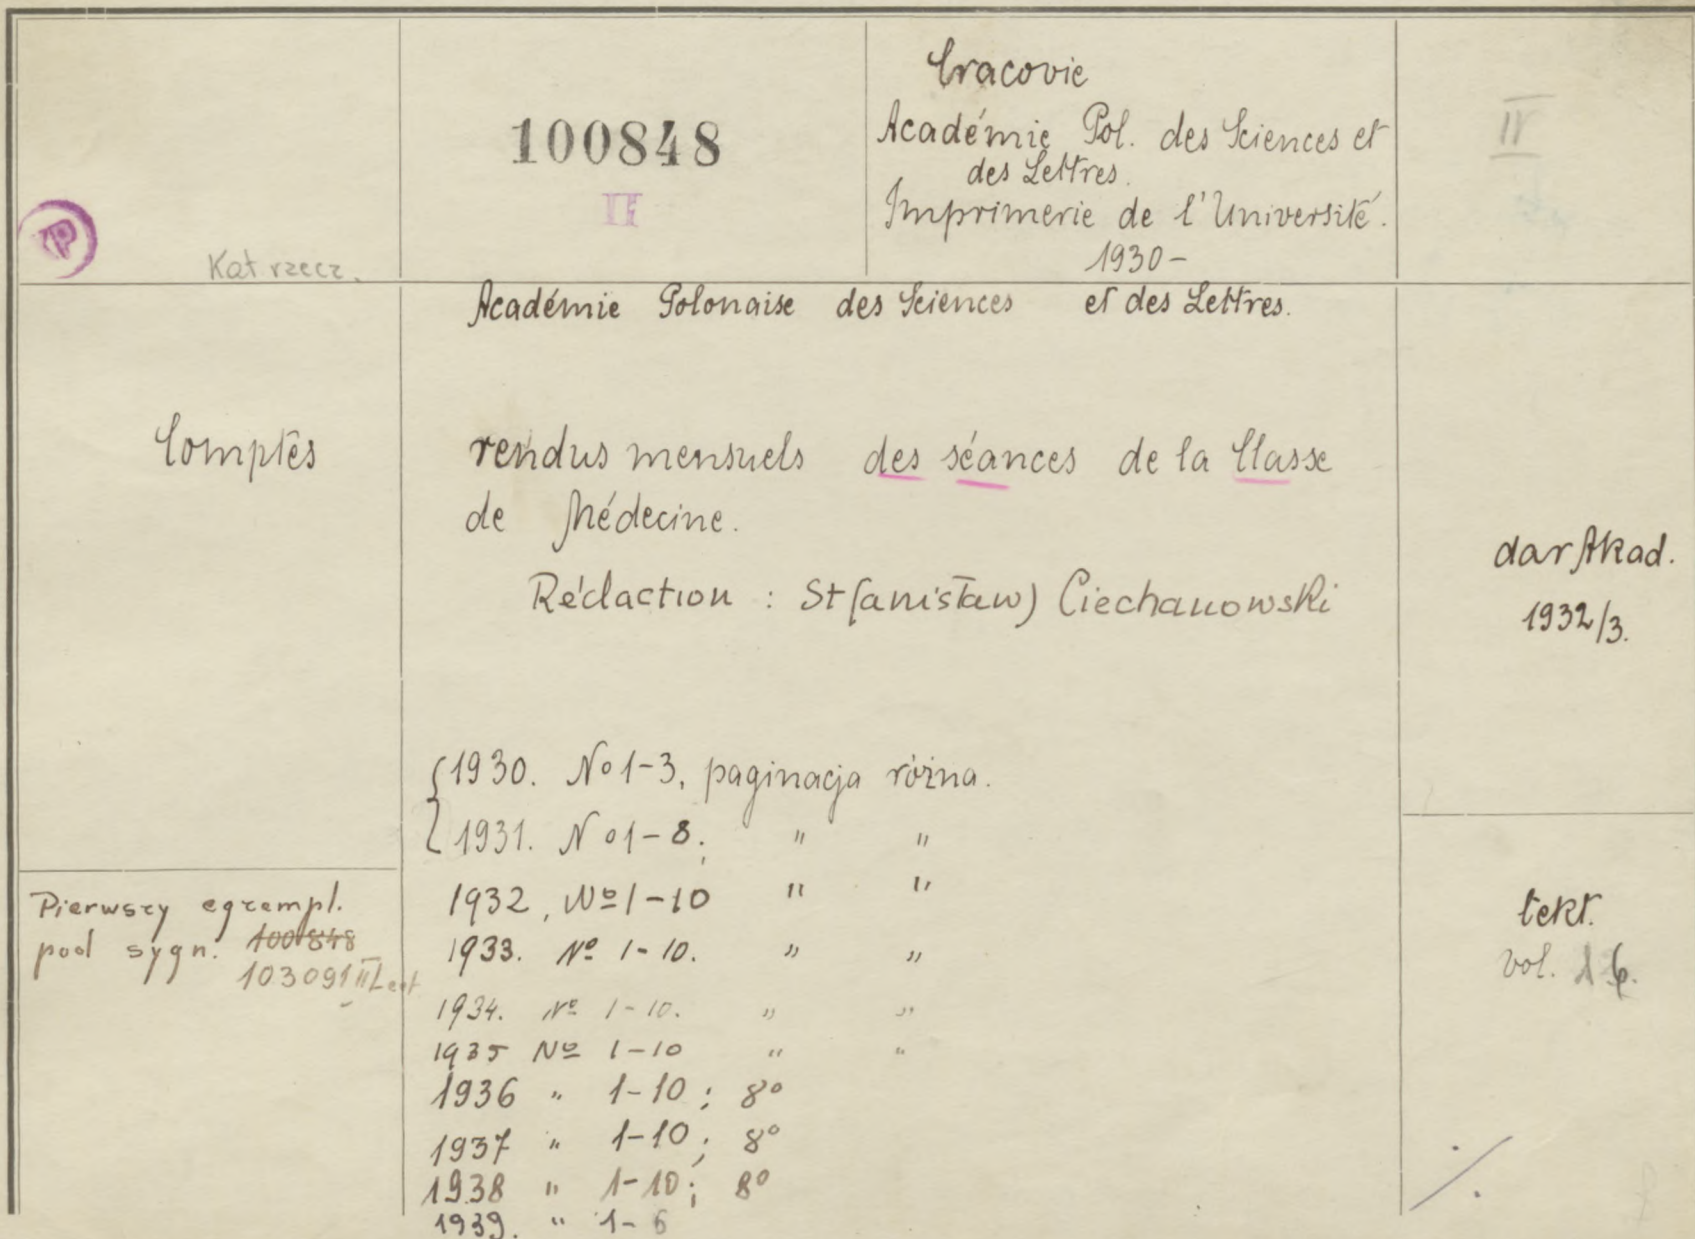 Cracovie
100848
Académie Pol. des Sciences et
des Lettres.
II
Imprimerie de l'Université.
1930-
II
Kat rzecz.
Académie Polonaise des Sciences et des Lettres.
Comptes rendus mensuels des séances de la Classe
de Médecine.
Rédaction : St(anisław) Ciechanowski
dar Akad.
1932/3.
1930. No 1-3, paginacja różna.
1931. No 1-8; " "
1932, No 1-10 " "
1933. No 1-10. " "
1934. No 1-10. " "
1935 No 1-10 " "
1936 " 1-10; 8°
1937 " 1-10; 8°
1938 " 1-10; 8°
1939. " 1-6
Pierwszy egzempl.
pod sygn. 100848
103091 II
tekt.
vol.